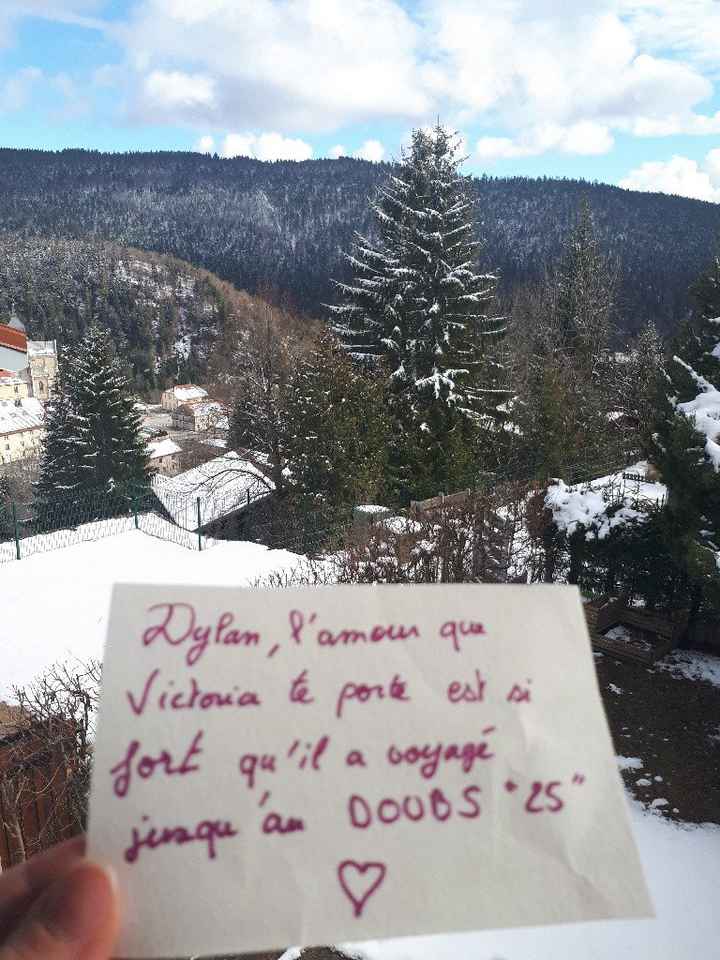 Dylan, l'amour que
Victoria te porte est si
fort qu'il a voyagé
jusqu'au DOUBS "25"
♡